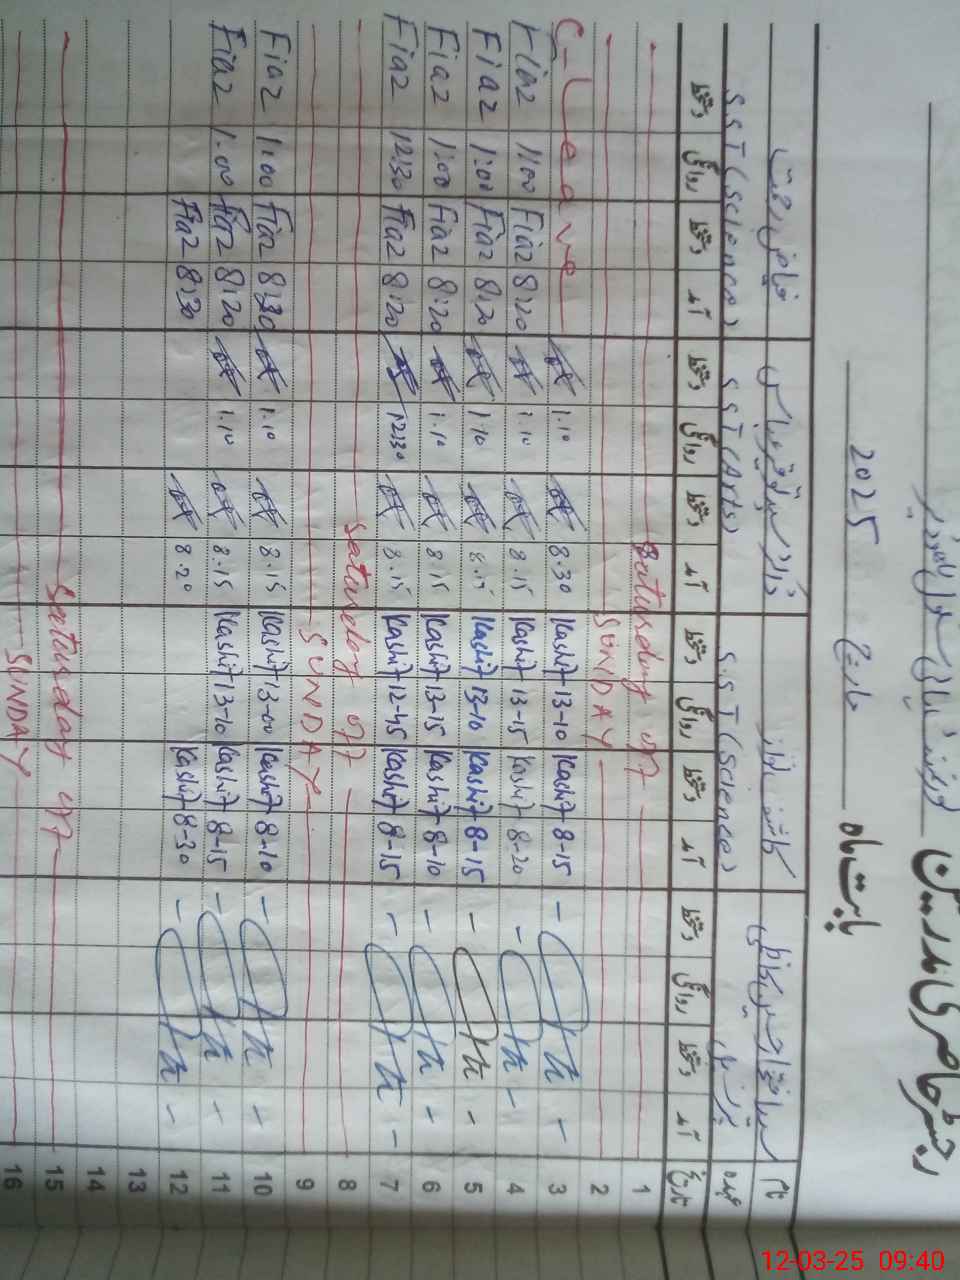 رجسٹر حاضری مدرسین گورنمنٹ ہائی سکول
بابت ماہ مارچ 2025
نام
عہدہ پرنسپل S.S.T(Science) S.S.T(Arts) S.S.T(Science)
تاریخ آمد دستخط روانگی دستخط آمد دستخط روانگی دستخط آمد دستخط روانگی دستخط آمد دستخط روانگی دستخط
1 Saturday off
2 SUNDAY
3 8-15 Kashif 13-10 Kashif 8.30 1.10 C-Leave
4 8-20 Kashif 13-15 Kashif 8.15 1.10 8:20 Fiaz 1:00 Fiaz
5 8-15 Kashif 13-10 Kashif 8.15 1.10 8:20 Fiaz 1:00 Fiaz
6 8-10 Kashif 13-15 Kashif 8.15 1.10 8:20 Fiaz 1:00 Fiaz
7 8-15 Kashif 12-45 Kashif 8.15 12:30 8:20 Fiaz 12:30 Fiaz
8 Saturday off
9 SUNDAY
10 8-10 Kashif 13-00 Kashif 8.15 1.10 8:30 Fiaz 1:00 Fiaz
11 8-15 Kashif 13-10 Kashif 8.15 1.10 8:20 Fiaz 1:00 Fiaz
12 8-30 Kashif 8.20 8:30 Fiaz
13
14
15 Saturday off
16 SUNDAY
12-03-25 09:40